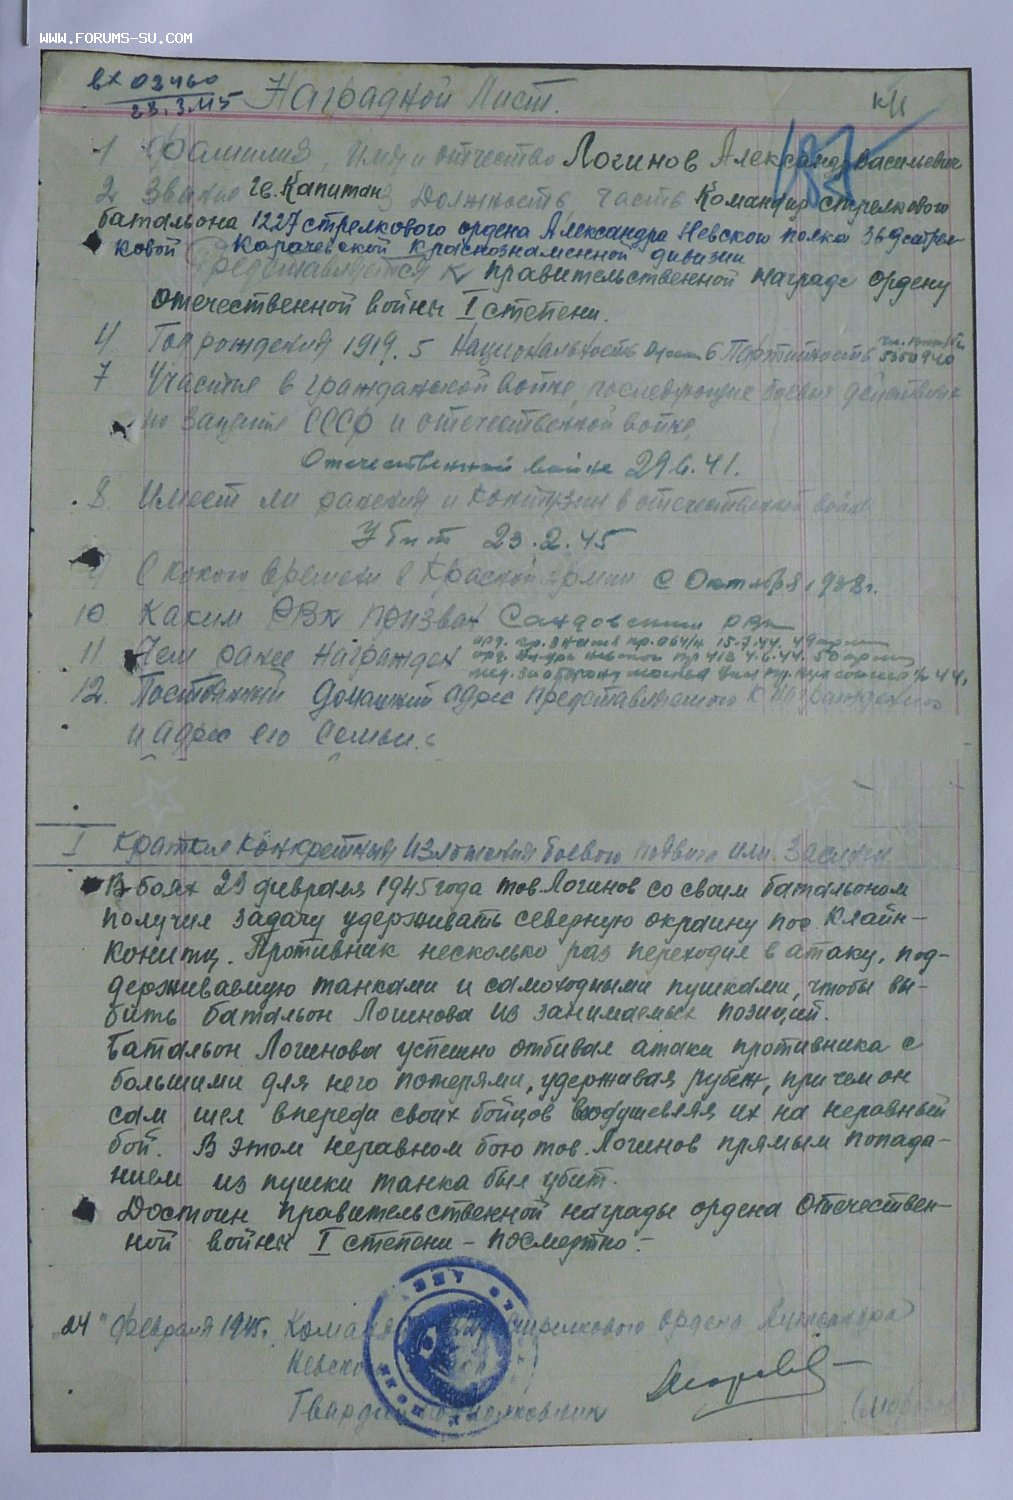 WWW.FORUMS-SU.COM
вх 02460
28.3.45 Наградной Лист.
187
1 Фамилия, Имя и отчество Логинов Александр Васильевич
2 Звание гв. Капитан 3 Должность, часть Командир стрелкового
батальона 1227 стрелкового ордена Александра Невского полка 369 стрел-
ковой Карачевской Краснознаменной дивизии
Представляется к правительственной награде ордену
Отечественной войны I степени.
4 Год рождения 1919. 5 Национальность 6 Партийность
7 Участие в гражданской войне, последующие боевые действия
по защите СССР и отечественной войне.
Отечественной войне 29.6.41.
8. Имеет ли ранения и контузии в отечественной войне
Убит 23.2.45
9 С какого времени в Красной Армии с Октября 1938 г.
10. Каким РВК призван Сандовским рвк
11 Чем ранее награжден орд. пр. 064/н 15.7.44. 49 армии
орд. Ал-дра Невского пр 413 4.6.44. 50 армии
12. Постоянный домашний адрес представляемого к награждению
и адрес его семьи.
I Краткое конкретное изложение боевого подвига или заслуги
В боях 23 февраля 1945 года тов. Логинов со своим батальоном
получил задачу удерживать северную окраину пос. Клайн-
Конитц. Противник несколько раз переходил в атаку, под-
держиваемую танками и самоходными пушками, чтобы вы-
бить батальон Логинова из занимаемых позиций.
Батальон Логинова успешно отбивал атаки противника с
большими для него потерями, удерживая рубеж, причем он
сам шел впереди своих бойцов воодушевляя их на неравный
бой. В этом неравном бою тов. Логинов прямым попада-
нием из пушки танка был убит.
Достоин правительственной награды ордена Отечествен-
ной войны I степени - посмертно.-
24" февраля 1945г. стрелкового ордена Александра
Гвардии подполковник